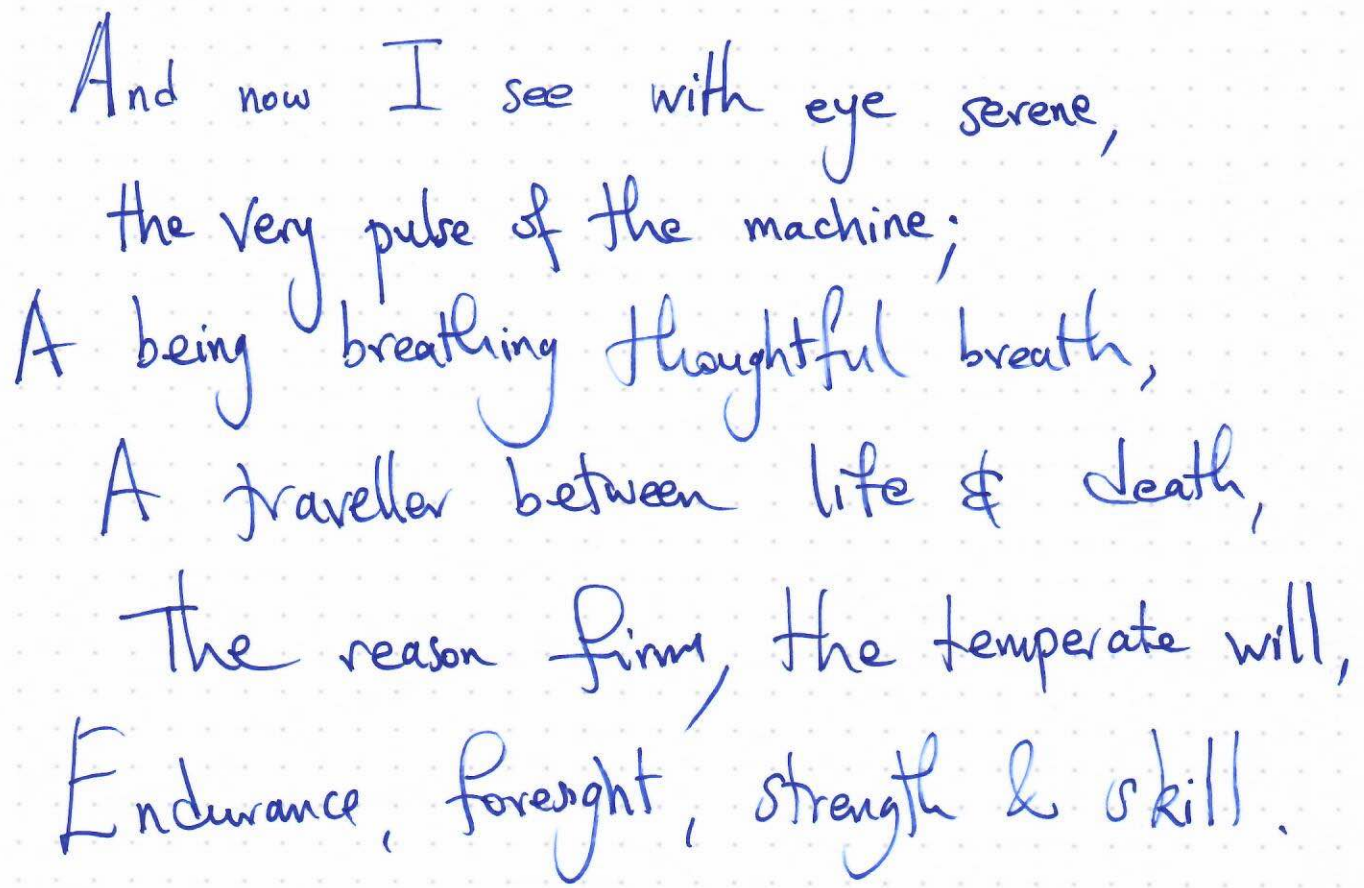 And now I see with eye serene,
the very pulse of the machine;
A being breathing thoughtful breath,
A traveller between life & death,
The reason firm, the temperate will,
Endurance, foresight, strength & skill.